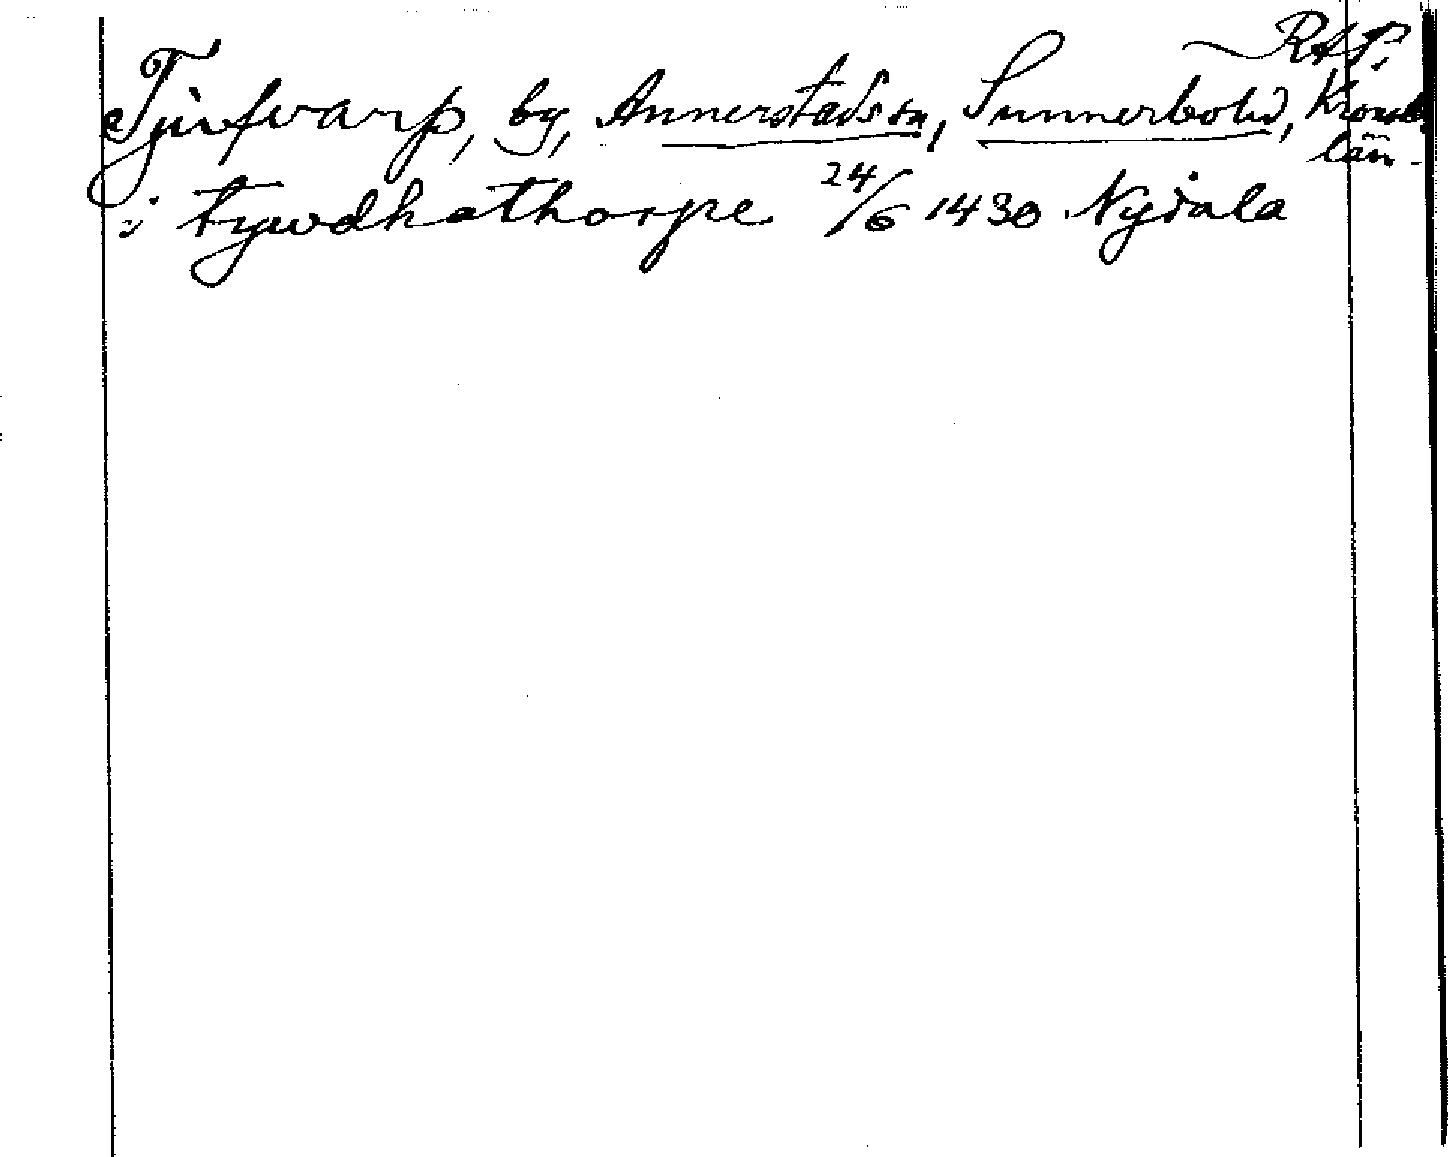 RAP.
Tjufvarp, by, Annerstads sn, Sunnerbo hd, Kronob.
län.
i tywdhathorpe 24/6 1430 Nydala